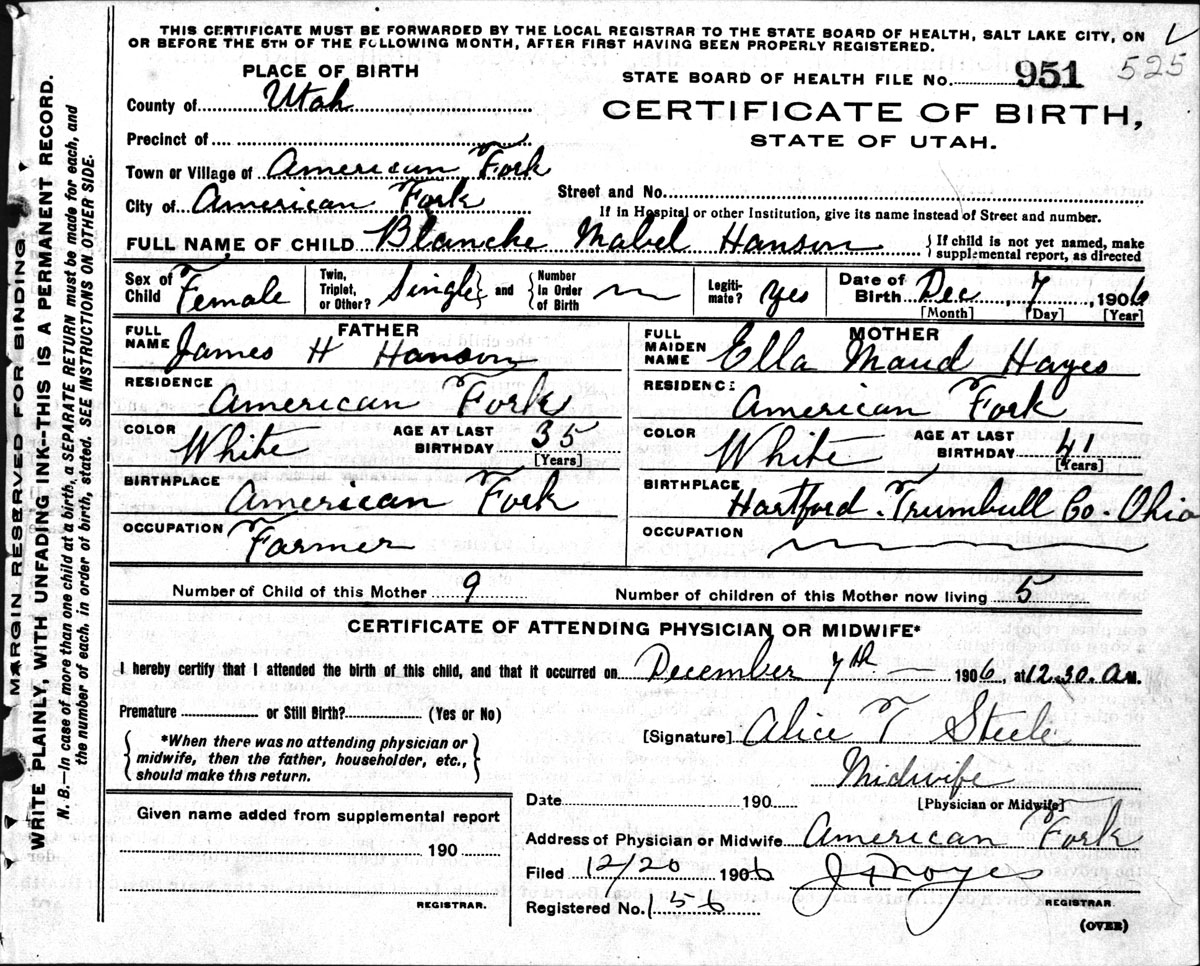 THIS CERTIFICATE MUST BE FORWARDED BY THE LOCAL REGISTRAR TO THE STATE BOARD OF HEALTH, SALT LAKE CITY, ON
OR BEFORE THE 5TH OF THE FOLLOWING MONTH, AFTER FIRST HAVING BEEN PROPERLY REGISTERED.
525
PLACE OF BIRTH
STATE BOARD OF HEALTH FILE No. 951
County of Utah
CERTIFICATE OF BIRTH,
STATE OF UTAH.
Precinct of
Town or Village of American Fork
Street and No.
City of American Fork
If in Hospital or other Institution, give its name instead of Street and number.
FULL NAME OF CHILD Blanche Mabel Hanson { If child is not yet named, make supplemental report, as directed
Sex of Child Female Twin, Triplet, or Other? Single } and { Number in Order of Birth Legiti-mate? yes Date of Birth Dec, 7, 1906
[Month] [Day] [Year]
FATHER MOTHER
FULL NAME James H Hanson FULL MAIDEN NAME Ella Maud Hayes
RESIDENCE American Fork RESIDENCE American Fork
COLOR White AGE AT LAST BIRTHDAY 35 [Years] COLOR White AGE AT LAST BIRTHDAY 41 [Years]
BIRTHPLACE American Fork BIRTHPLACE Hartford. Trumbull Co. Ohio
OCCUPATION Farmer OCCUPATION
Number of Child of this Mother 9 Number of children of this Mother now living 5
CERTIFICATE OF ATTENDING PHYSICIAN OR MIDWIFE*
I hereby certify that I attended the birth of this child, and that it occurred on December 7th 1906, at 12.30. A M.
Premature or Still Birth? (Yes or No)
[Signature] Alice T Steele
{ *When there was no attending physician or
midwife, then the father, householder, etc.,
should make this return. }
Midwife
[Physician or Midwife]
Date 190
Given name added from supplemental report
190
REGISTRAR.
Address of Physician or Midwife American Fork
Filed 12/20 1906
REGISTRAR.
Registered No. 156
(OVER)
MARGIN RESERVED FOR BINDING
WRITE PLAINLY, WITH UNFADING INK--THIS IS A PERMANENT RECORD.
N. B.—In case of more than one child at a birth, a SEPARATE RETURN must be made for each, and
the number of each, in order of birth, stated. SEE INSTRUCTIONS ON OTHER SIDE.